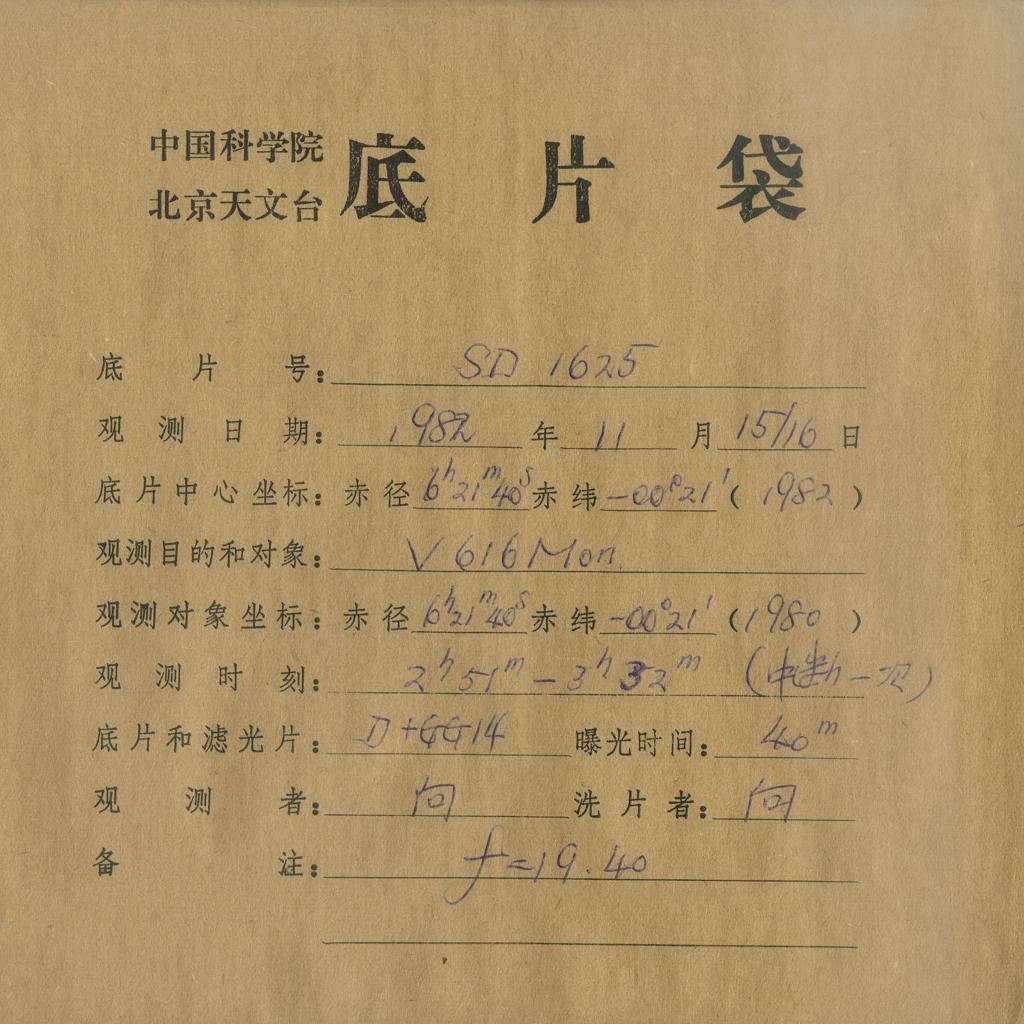 中国科学院
北京天文台 底片袋
底片号: SD 1625
观测日期: 1982 年 11 月 15/16 日
底片中心坐标: 赤径 6ʰ21ᵐ40ˢ 赤纬 -00°21′ (1982)
观测目的和对象: V616 Mon
观测对象坐标: 赤径 6ʰ21ᵐ40ˢ 赤纬 -00°21′ (1980)
观测时刻: 2ʰ51ᵐ - 3ʰ32ᵐ (中断一次)
底片和滤光片: D+GG14 曝光时间: 40ᵐ
观测者: 向 洗片者: 向
备注: f=19.40